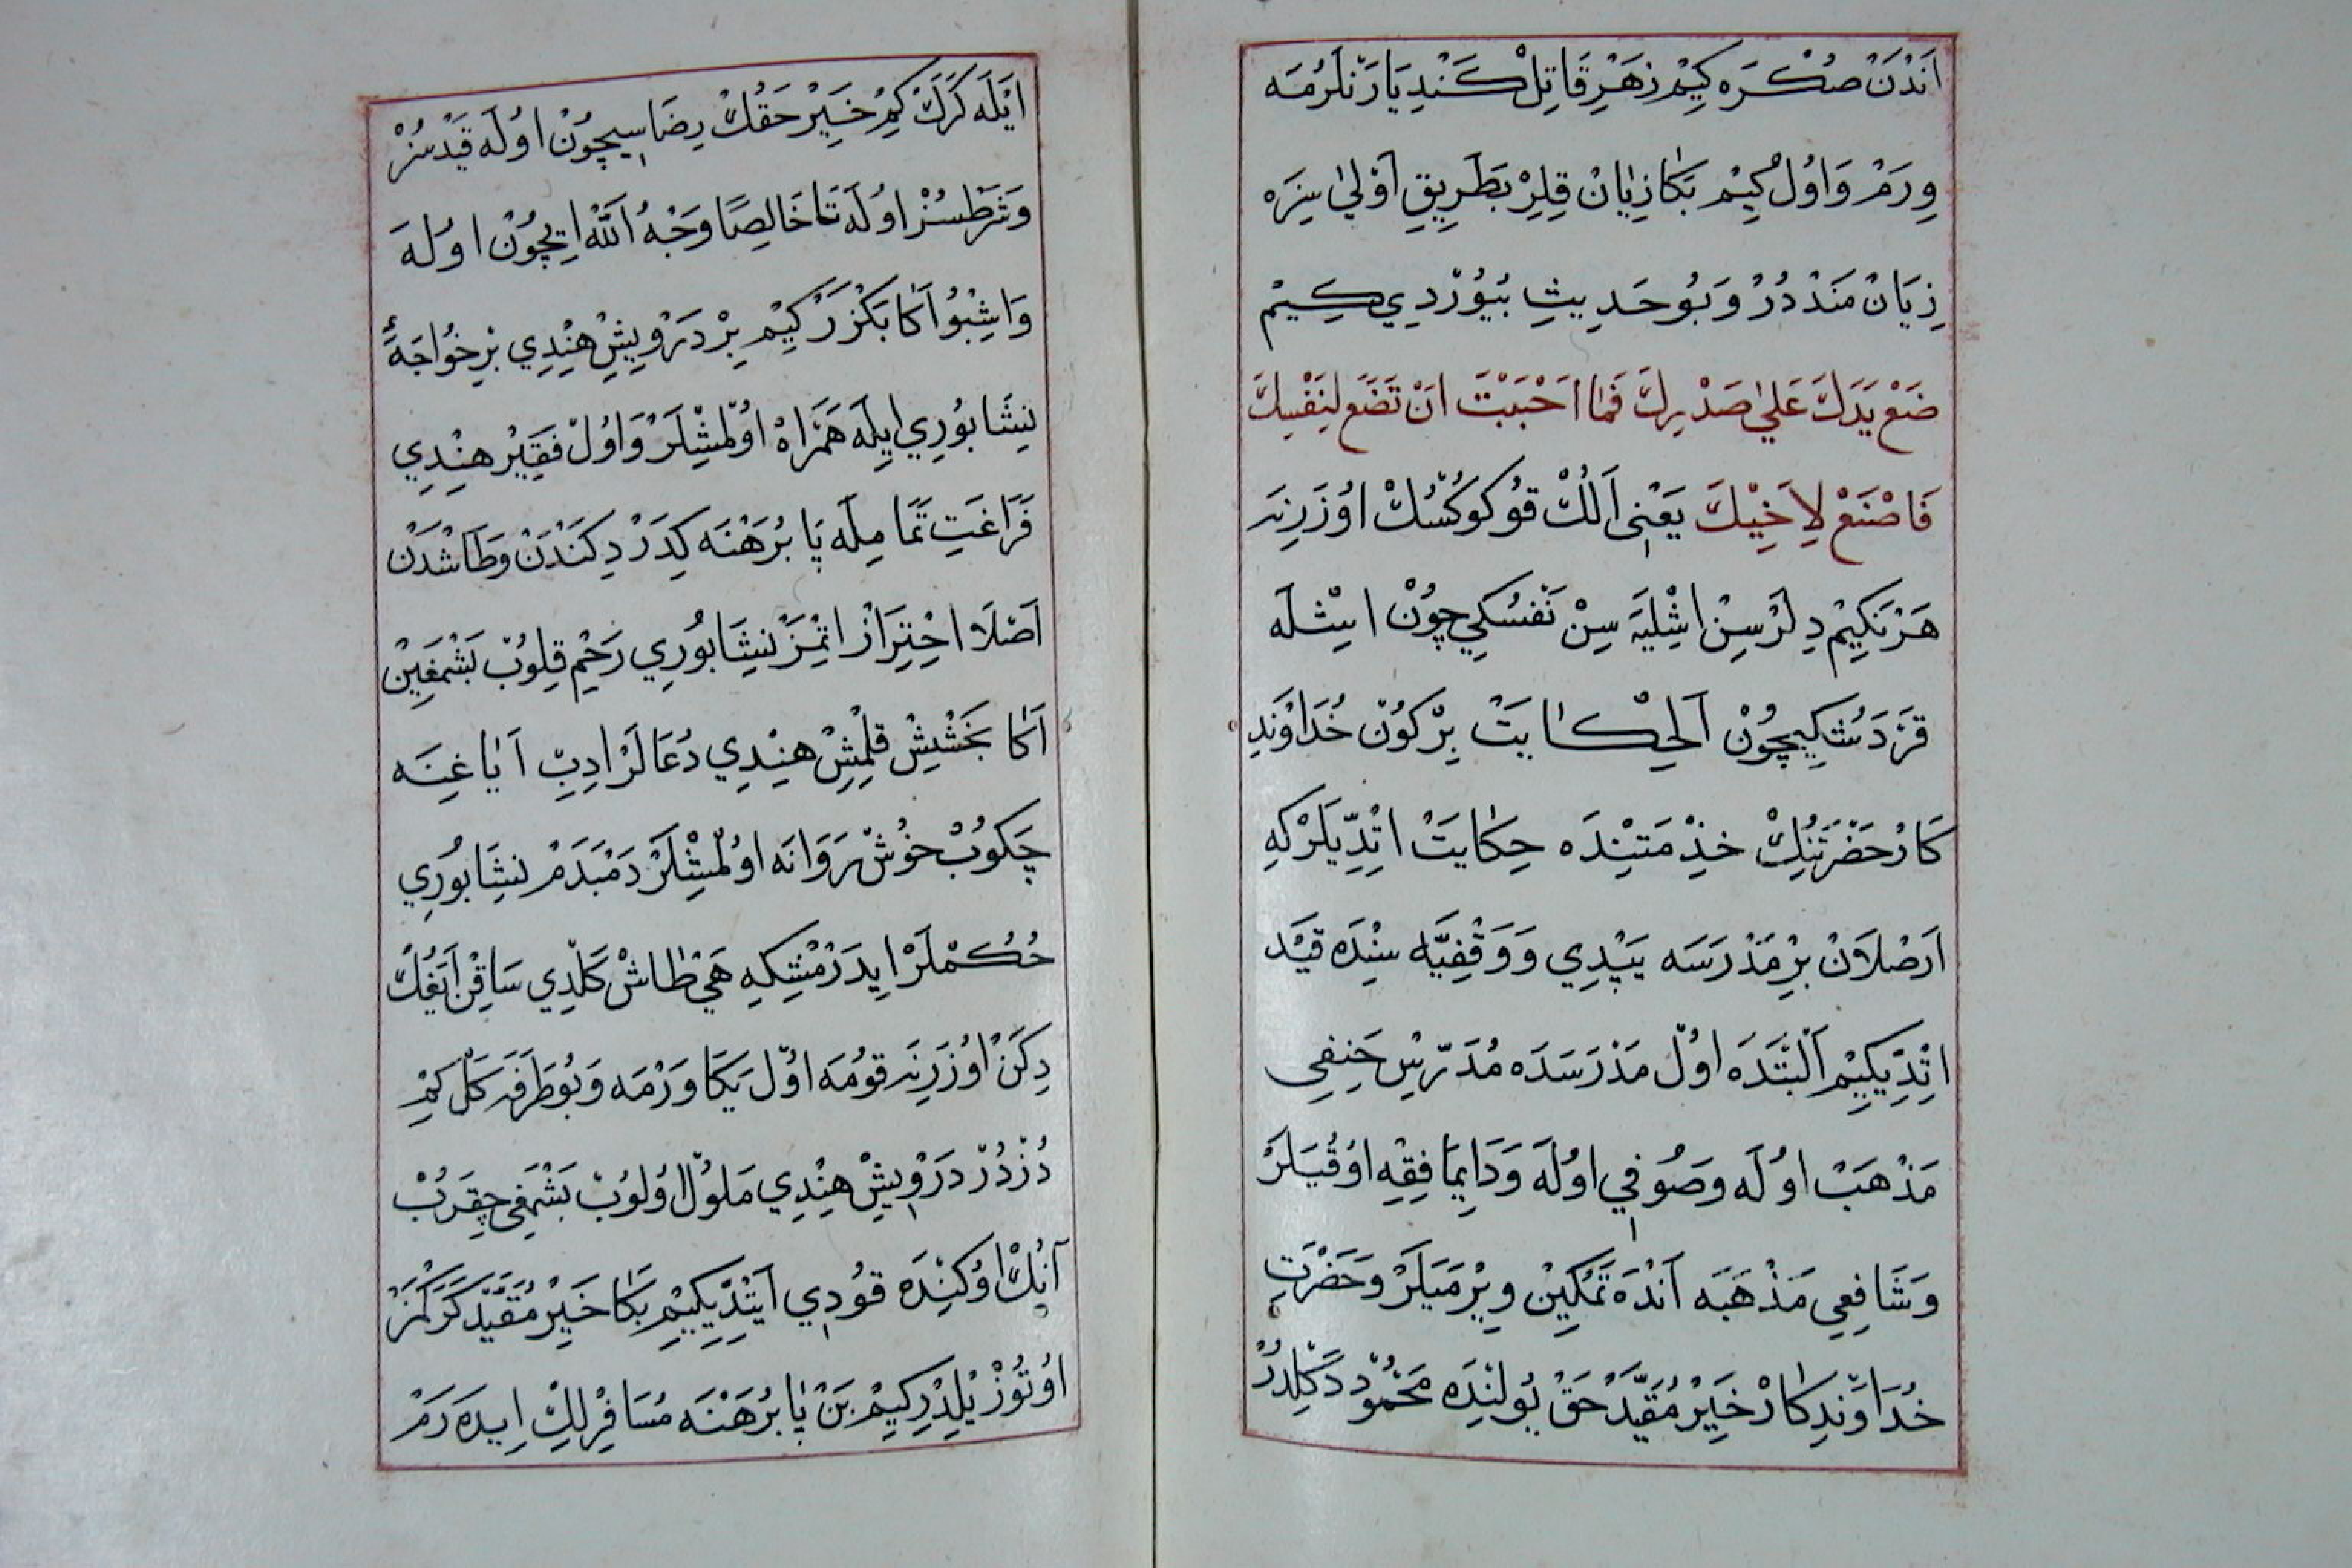 اَنْدَنْ صُكْرَه كِيْم زَهْرِ قَاتِلْ كَنْدِ يَارَنْلَرُمَه
وِرَمْ وَاوُلْ كِيْم بَكَا زِيَانْ قِلِرْ بَطَرِيقِ اَوْلٰى سِزَه
زِيَانْ مَنْدْدُرْ وَبُو حَدِيثِ بُيُوُرْدِي كِيمْ
ضَعْ يَدَكَ عَلٰي صَدْرِكَ فَمَا اَحْبَبْتَ اَنْ تَضَعَ لِنَفْسِكَ
فَاصْنَعْ لِاَخِيْكَ يَعْنِى اَلُكْ قُو كُوكُسُكْ اوُزَرِنَه
هَرْنَكِيْم دِلَرْسِنْ اشْلِيَه سِنْ نَفْسُكِيچُونْ اشْلَه
قَرَدَشُكِيچُونْ اَلْحِكَايَتْ بِرْ كُونْ خُدَاوَنْدِ
كَارْ حَضْرَتْنِكْ خِذْمَتِنْدَه حِكَايَتْ اتْدِيلَرْكِهِ
اَرَصْلَانْ بِرْ مَدْرَسَه يَپْدِي وَ وَقْفِيَّه سِنْدَه قَيْد
اتْدِيكِيْم اَلْبَتَّه دَه اوُلْ مَدْرَسَدَه مُدَرِّسْ حَنِفِى
مَذْهَبْ اوُلَه وَصُوفِي اوُلَه وَدَايِمَا فِقِه اوُقُيَلَرْ
وَشَافِعِي مَذْهَبَه اَنْدَه تَمْكِينْ وِيرْمَيَلَرْ وَحَضْرَتِ
خُدَاوَنْدِكَارْ خَيْرِ مُقَيَّدْ حَقْ يُولِنْدَه مَحْمُودْ دَكِلْدُرْ
ايْلَه كَرَكْ كِمْ خَيِرْ حَقُكْ رِضَاسِيچُونْ اوُلَه قَيْدْسُزْ
وَشَرْطْسُزْ اوُلَه تَا خَالِصًا وَجْهُ اَللّٰه ايچُونْ اوُلَه
وَاشْبُو اَكَا بَكْزَرْ كِيْم بِرْ دَرْوِيشْ هِنْدِي بِرْ خُواجَهٔ
نِيشَابُورِي ايلَه هَمْرَاهْ اوُلْمِشْلَرْ وَاوُلْ فَقِيرْ هِنْدِي
فَرَاغَتِ تَمَامِلَه پَا بُرَهْنَه كِدَرْ دِكَنْدَنْ وَطَاشْدَنْ
اَصْلَا احْتِرَازْ اتْمِزْ نِيشَابُورِي رَحْم قِلُوبْ بَشْمَغِينْ
اَكَا بَخْشِيشْ قِلْمِشْ هِنْدِي دُعَالَرْ ادِبْ اَيَاغِنَه
چَكُوبْ خُوشْ رَوَانَه اوُلْمِشْلَرْ دَمْبَدَمْ نِيشَابُورِي
حُكْمْلَرْ ايدَرْمِشْكِه هَيْ طَاشْ كَلْدِي سَاقِنْ اَيَغُكْ
دِكَنْ اوُزَرِنَه قُومَه اوُلْ يَكَا وَرْمَه وَبُو طَرَفَه كَلْ كِمْ
دُزْدُرْ دَرْوِيشْ هِنْدِي مَلُولْ اوُلُوبْ بَشْمَغِى چِقَرُبْ
اَنُكْ اوُكِنْدَه قُودِي اَيِتْدِيكِيْم بَكَا خَيْرِ مُقَيَّدْ كَرَكْمَزْ
اوُتُوزْ يْلِدِرْ كِيْم بَنْ پَا بُرَهْنَه مُسَافِرْلِكْ ايدَرَمْ